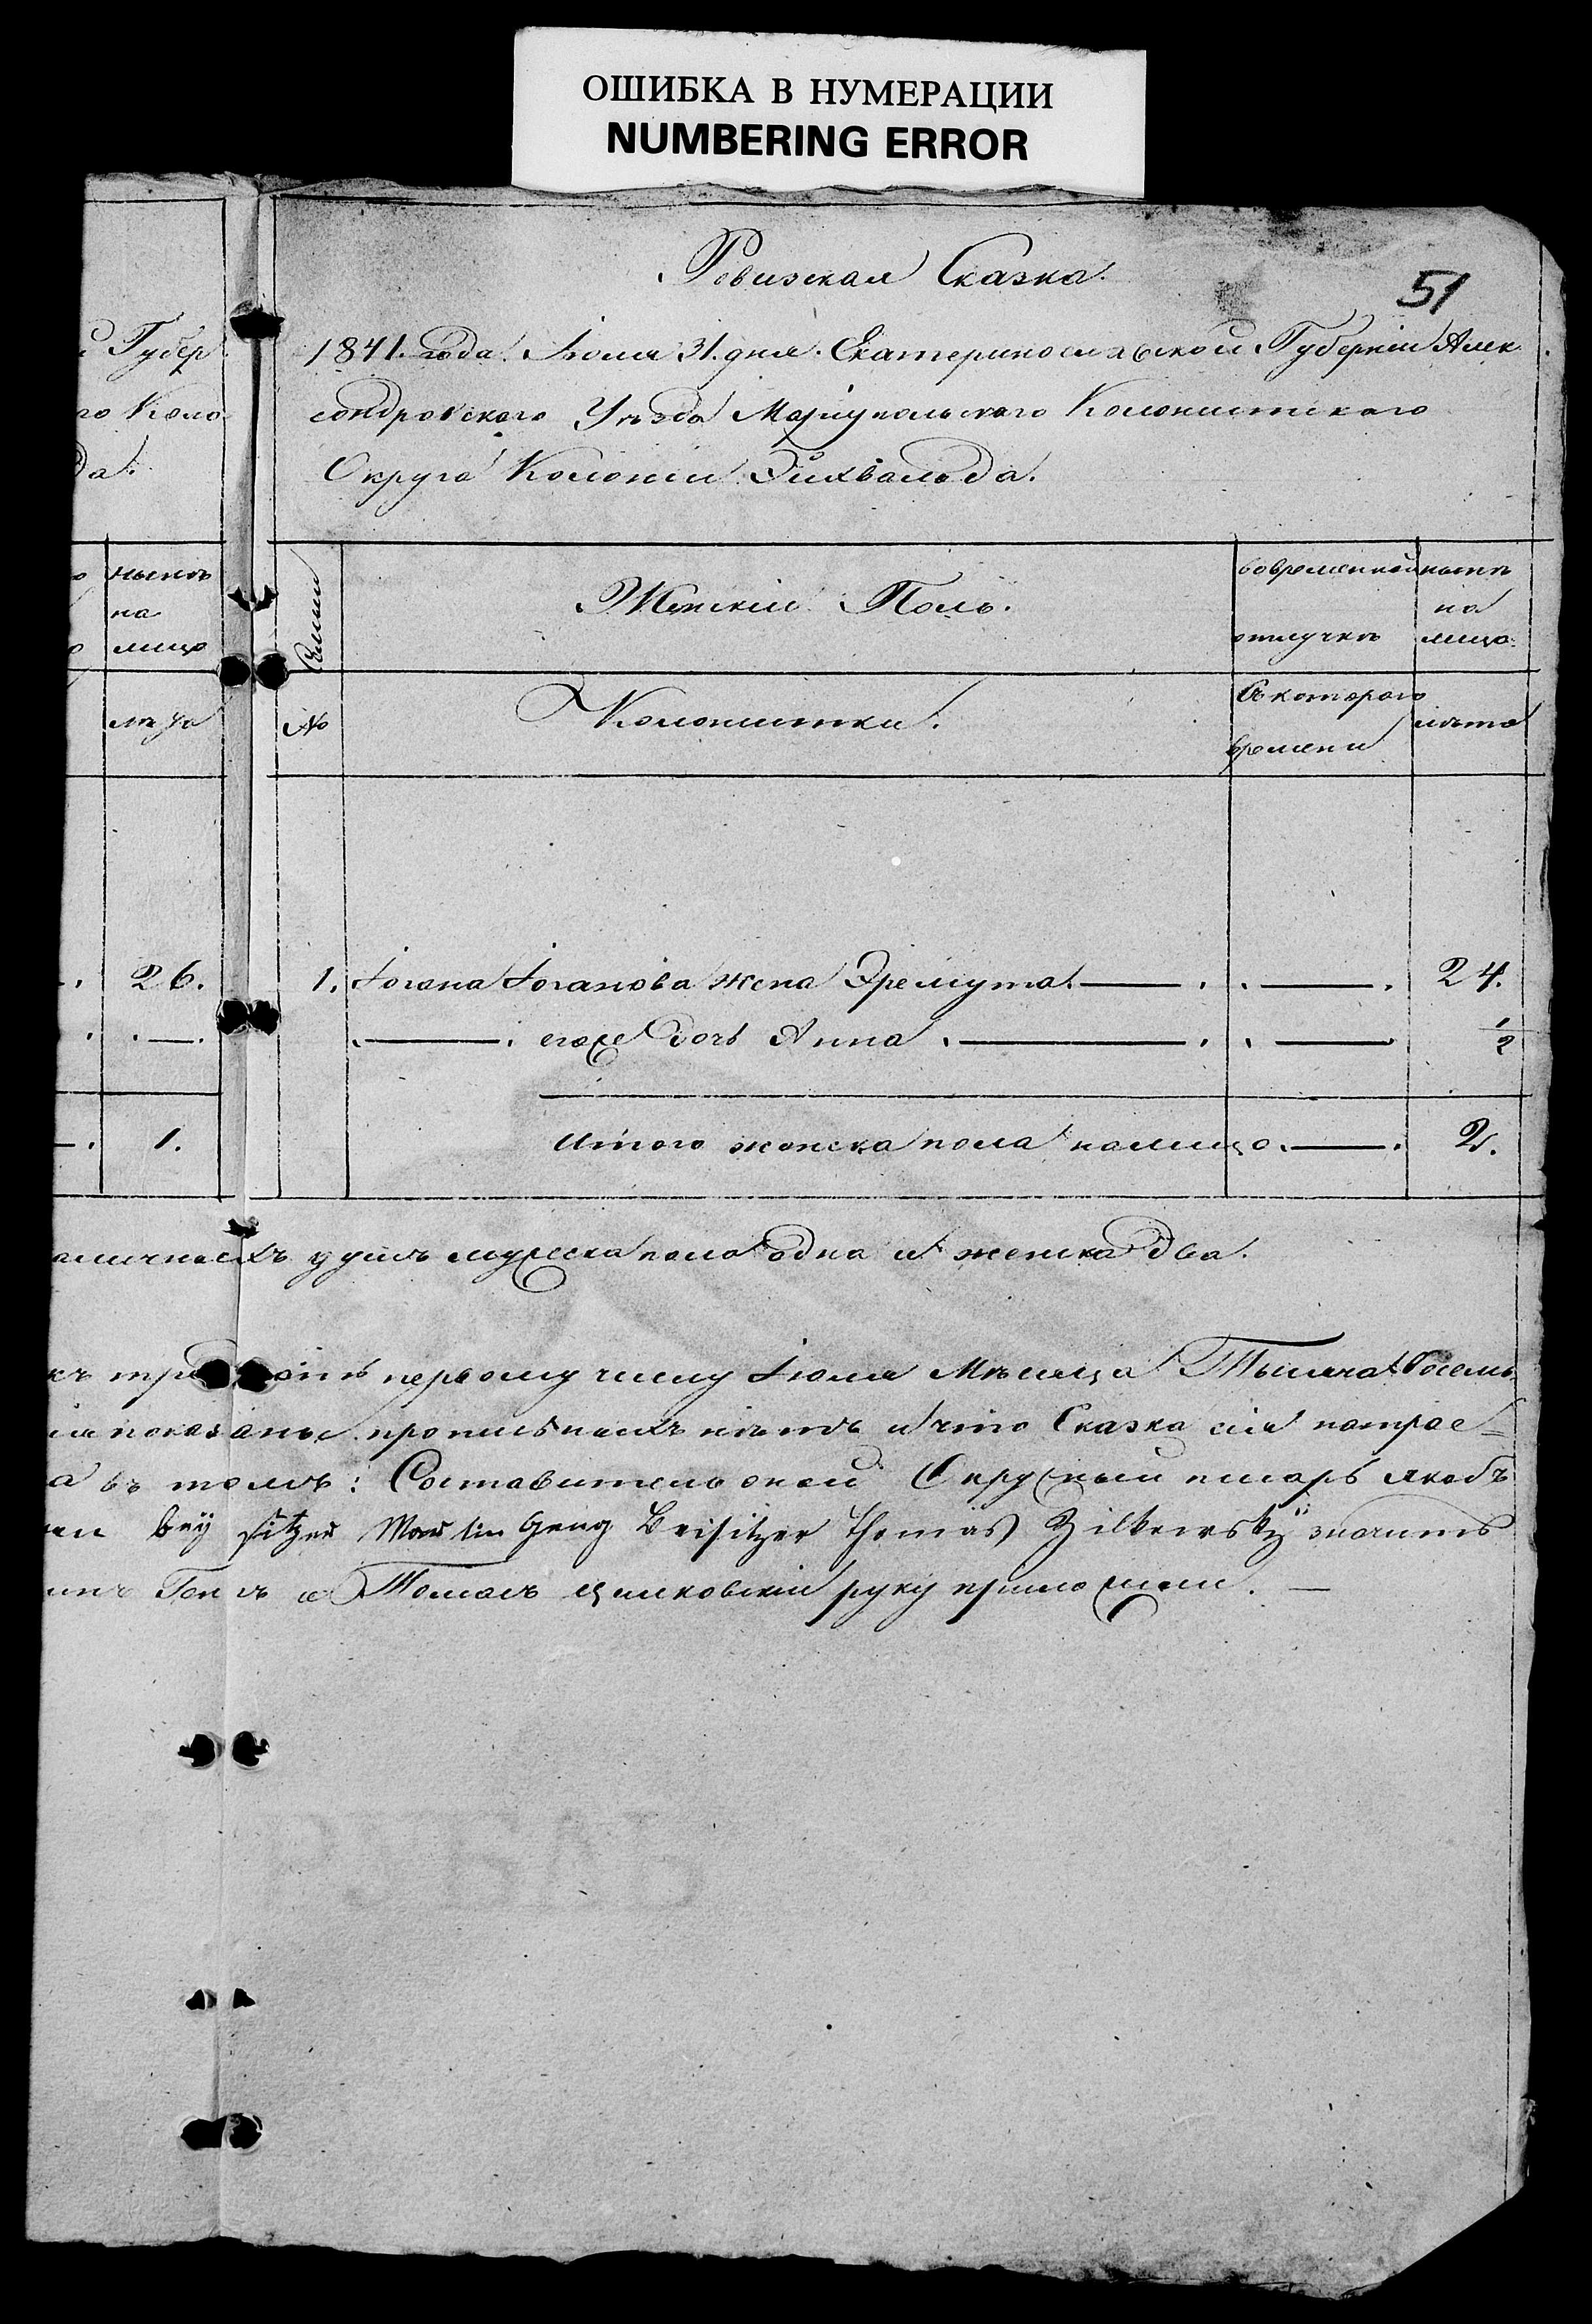 ОШИБКА В НУМЕРАЦИИ
NUMBERING ERROR
Ревизская Сказка.
51
й Губер
1841. года. Іюля 31. дня. Екатеринославской Губерніи Алек
го Коло
сондровского Уѣзда Маріупольского Колонистского
да.
Округа Колоніи Эихвальда.
о
нынѣ
на
о
лицо
Семьи
Женскій Полъ.
вовременной
отлучкѣ
нынѣ
на
лицо.
лѣта
№
Колонистки.
Съ которого
времени
лѣта
26.
1. Іогана Іоганова жена Эремута. 24.
егоже дочь Анна 1/2
1.
Итого женска пола налицо. 2.
аличныхъ душъ мужеска пола одна и женска два.
къ три первому числу Іюля Мѣсяца Тысяча Восемь
показаны прописныхъ нѣтъ и что Сказка сія
а въ томъ: Составитель оной Окружный писарь Якобъ
Beÿ sitzer Martin Geng Beisitzer Thomas Zilkewskÿ значитъ
Генъ и Томасъ Цилковскій руку приложили.
РУБЛЬ